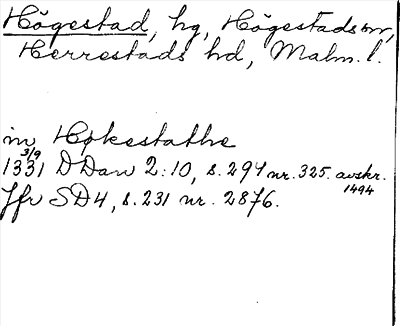 Högestad, hg, Högestads sn,
Herrestads hd, Malm. l.
in Høkestathe
3/9
1331 DDan 2:10, s. 294 nr. 325. avskr. 1494
Jfr SD4, s. 231 nr. 2876.